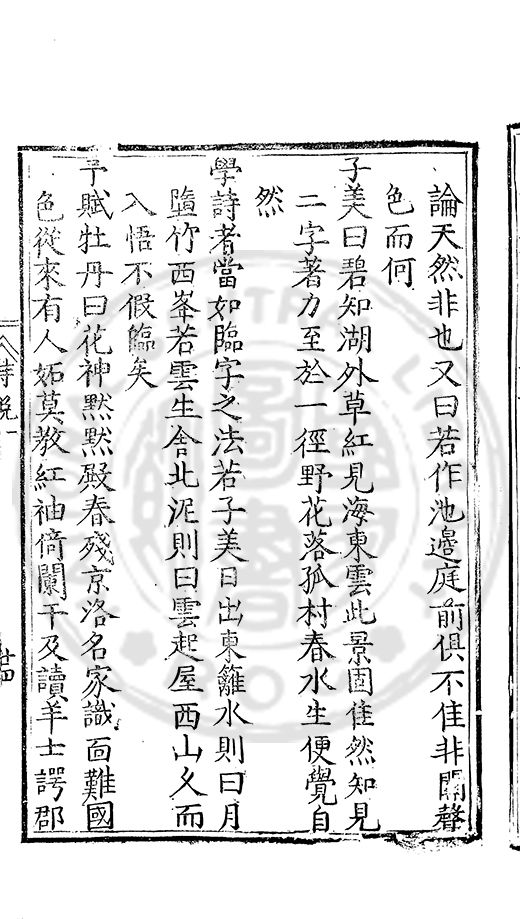 論天然非也又曰若作池邊庭前俱不佳非關聲
色而何
子美曰碧知湖外草紅見海東雲此景固佳然知見
二字著力至於一徑野花落孤村春水生便覺自
然
學詩者當如臨字之法若子美日出東籬水則曰月
墮竹西峯若雲生舍北泥則曰雲起屋西山久而
入悟不假臨矣
予賦牡丹曰花神默默殿春殘京洛名家識面難國
色從來有人妬莫教紅袖倚闌干及讀羊士諤郡